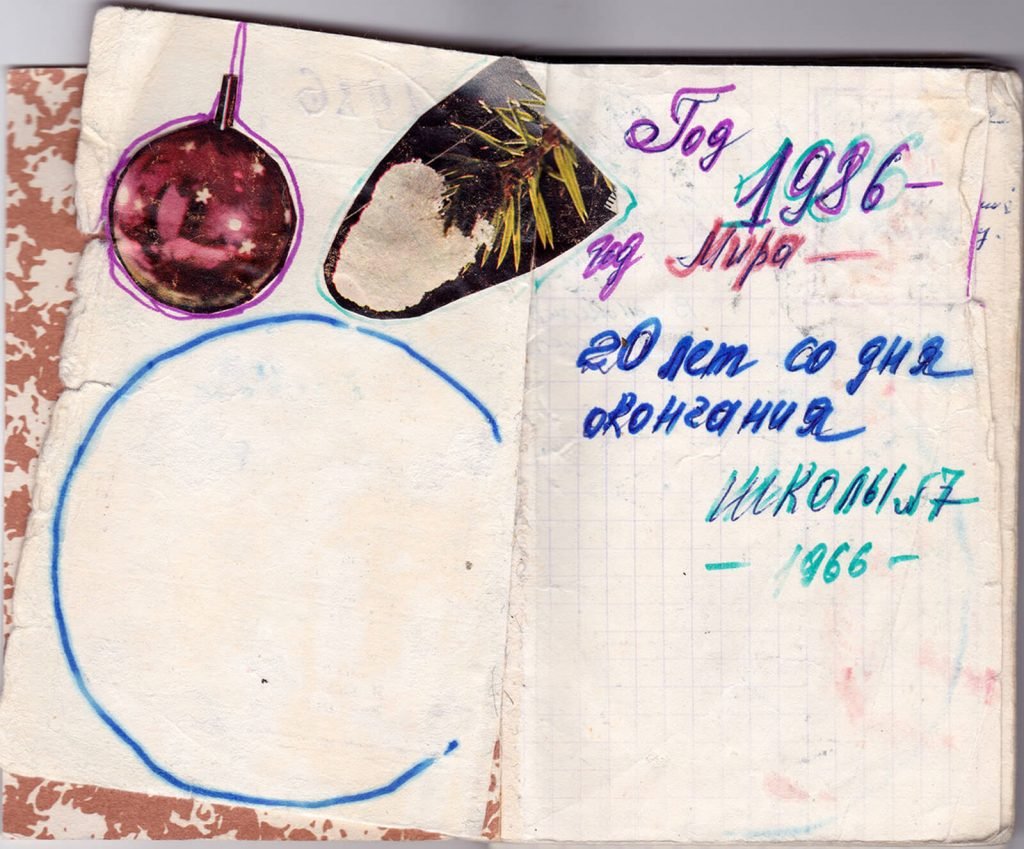 Год
1986 –
год Мира –
20 лет со дня
окончания
школы №7
– 1966 –